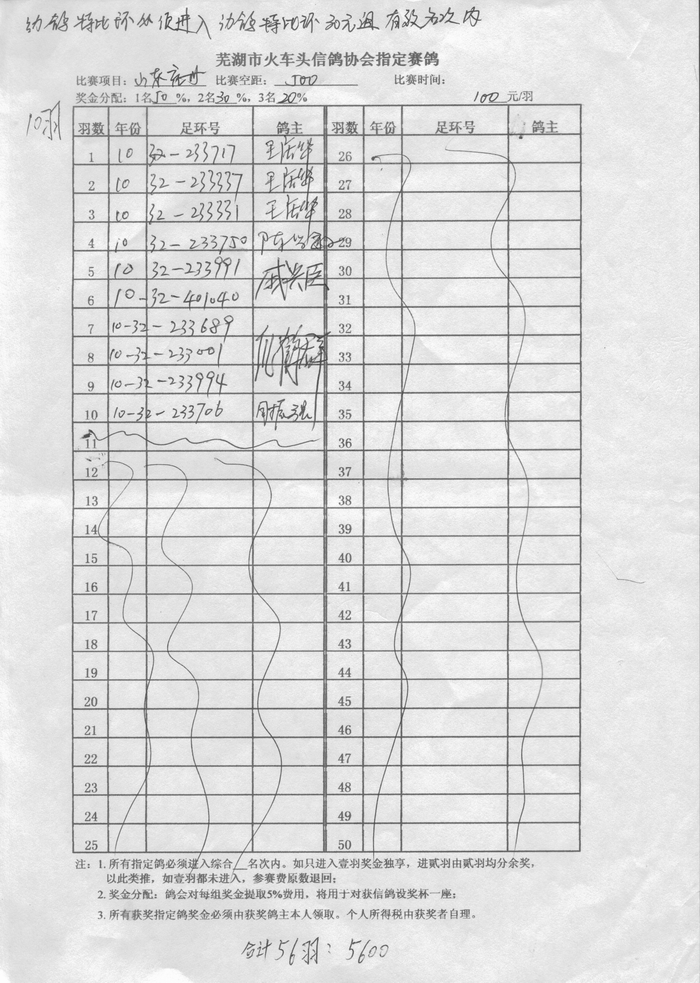 幼鸽特比环必须进入幼鸽特比环30元组有效名次内
芜湖市火车头信鸽协会指定赛鸽
比赛项目：山东 比赛空距：500 比赛时间：
奖金分配：1名50%，2名30%，3名20% 100元/羽
10羽
羽数 年份 足环号 鸽主 羽数 年份 足环号 鸽主
1 10 32-233717 王庆华 26
2 10 32-233337 王庆华 27
3 10 32-233331 王庆华 28
4 10 32-233750 29
5 10 32-233991 戚兴臣 30
6 10-32-401040 31
7 10-32-233689 32
8 10-32-233001 33
9 10-32-233994 34
10 10-32-233706 35
11 36
12 37
13 38
14 39
15 40
16 41
17 42
18 43
19 44
20 45
21 46
22 47
23 48
24 49
25 50
注：1. 所有指定鸽必须进入综合__名次内。如只进入壹羽奖金独享，进贰羽由贰羽均分余奖，
以此类推，如壹羽都未进入，参赛费原数退回；
2. 奖金分配：鸽会对每组奖金提取5%费用，将用于对获信鸽设奖杯一座；
3. 所有获奖指定鸽奖金必须由获奖鸽主本人领取。个人所得税由获奖者自理。
合计56羽：5600